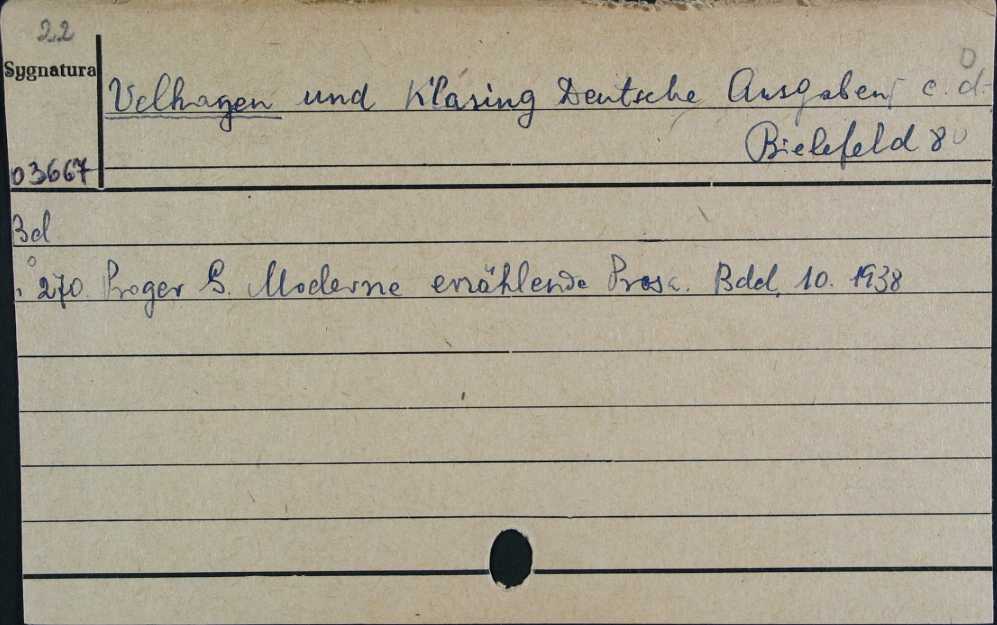 22
Sygnatura
Velhagen und Klasing Deutsche Ausgaben c. d.
Bielefeld 8
03667
Bd
270. Proger G. Moderne erzählende Prosa. Bdd. 10. 1938